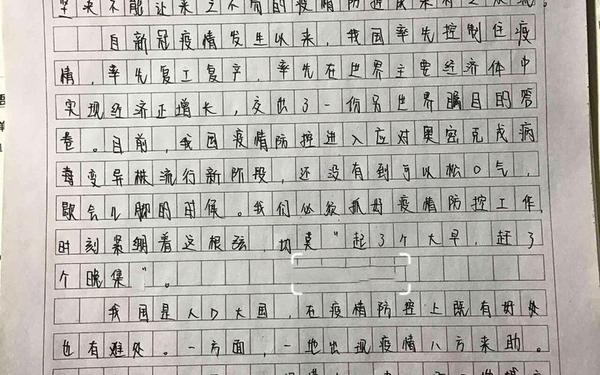 坚决不能让来之不易的疫情防控成果
自新冠疫情发生以来，我国率先控制住疫
情，率先复工复产，率先在世界主要经济体中
实现经济正增长，交出了一份另世界瞩目的答
卷。目前，我国疫情防控进入应对奥密克戎病
毒变异株流行新阶段，还没有到可以松口气，
歇会儿脚的时候。我们必须抓好疫情防控工作，
时刻紧绷着这根弦，切莫“起了个大早，赶了
个晚集”。
我国是人口大国，在疫情防控上既有好处
也有难处。一方面，一地出现疫情八方来助。